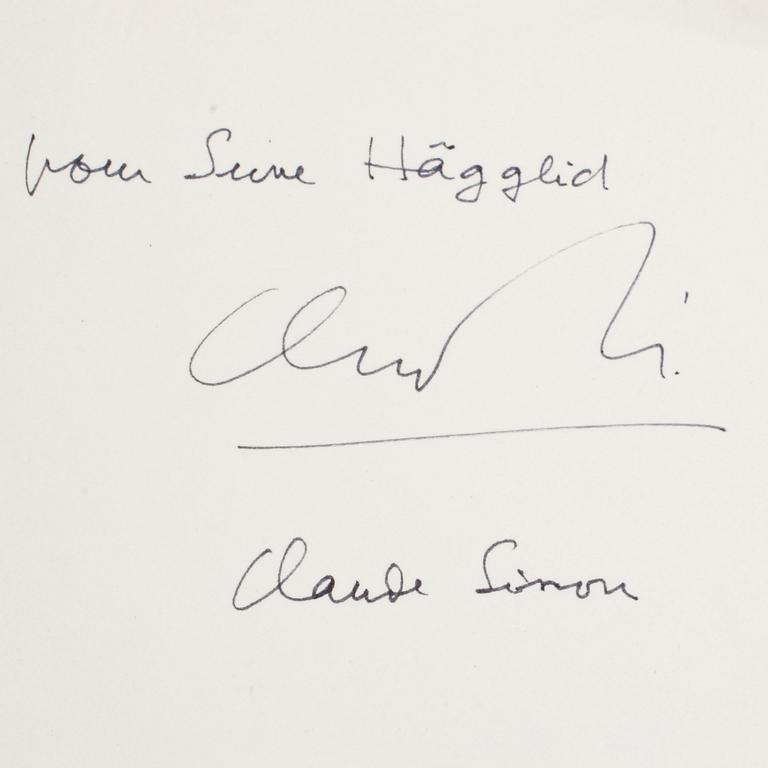 pour Sune Hägglid
Claude Simon